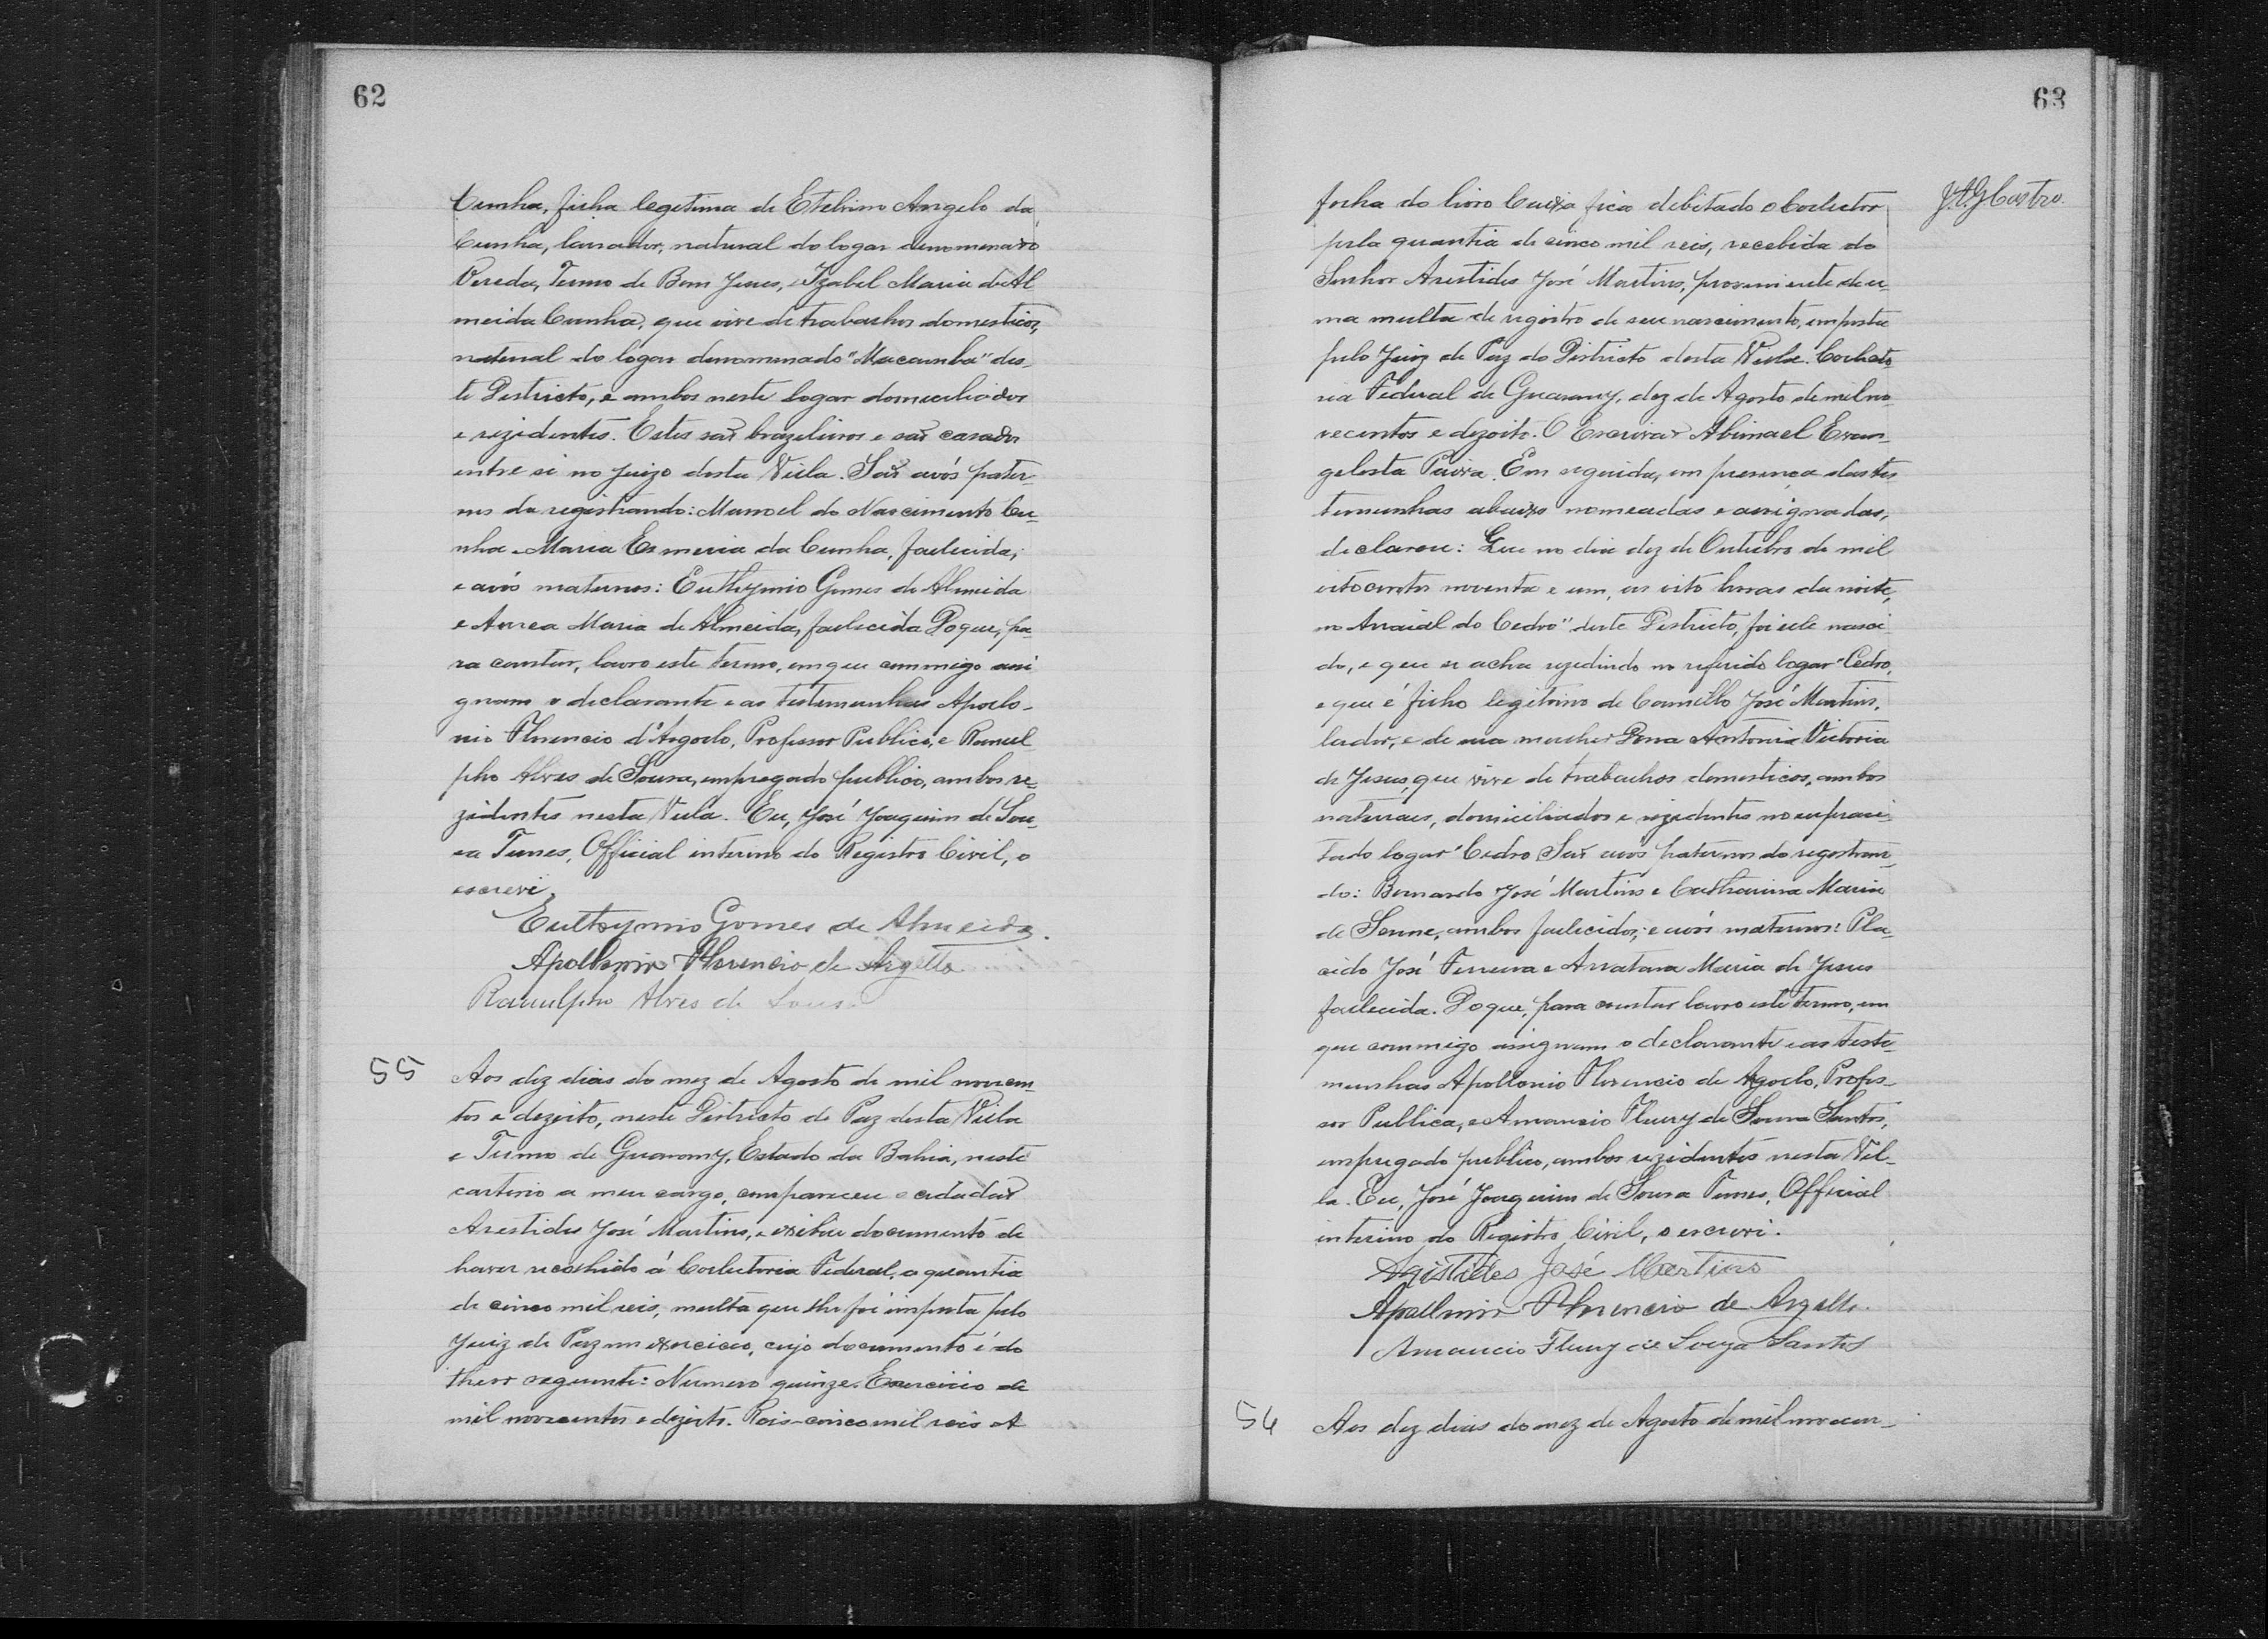 62
Cunha, filha legitima de Etelvino Angelo da
Cunha, lavrador, natural do logar denominado
Vereda, Termo de Bom Jesus, e Izabel Maria de Al
meida Cunha, que vive de trabalhos domesticos,
natural do logar denominado "Macamba" des-
te Districto, e ambos neste logar domiciliados
e rezidentes. Estes saõ brazileiros e saõ casados
entre si no Juizo desta Villa. Saõ avós pater-
nos da registrando: Manoel do Nascimento Cu-
nha e Maria Esmeria da Cunha, fallecida;
e avós maternos: Euthymio Gomes de Almeida
e Aurea Maria de Almeida, fallecida. Do que, pa
ra constar, lavro este termo, em que commigo assi
gnam o declarante e as testemunhas Apollo-
nio Florencio d'Argollo, Professor Publico, e Ranul
pho Alves de Sousa, empregado publico, ambos re-
zidentes nesta Villa. Eu, José Joaquim de Sou-
sa Tunes, Official interino do Registro Civil, o
escrevi.
Euthymio Gomes de Almeida.
Apollonio Florencio de Argollo
Ranulpho Alves de Sousa
55 Aos dez dias do mez de Agosto de mil novecen-
tos e dezoito, neste Districto de Paz desta Villa
e Termo de Guarany, Estado da Bahia, neste
cartorio a meu cargo, compareceu o cidadaõ
Arestides José Martins, e exibiu documento de
haver recolhido á Collectoria Federal, a quantia
de cinco mil reis, multa que lhe foi imposta pelo
Juiz de Paz em exercicio, cujo documento é do
theor seguinte: Numero quinze. Exercicio de
mil novecentos e dezoito. Reis - cinco mil reis. A
63
folha do livro Caixa fica debitado o Collector
J.A.G Castro.
pela quantia de cinco mil reis, recebida do
Senhor Arestides José Martins, proveniente de u-
ma multa de registro de seu nascimento, imposta
pelo Juiz de Paz do Districto desta Villa. Collecto
ria Federal de Guarany, dez de Agosto de mil no-
vecentos e dezoito. O Escrivaõ Abimael Evan-
gelista Paiva. Em seguida, em presença das tes
temunhas abaixo nomeadas e assignadas,
declarou: Que no dia dez de Outubro de mil
oitocentos noventa e um, as oito horas da noite,
no Arraial do Cedro" deste Districto, foi elle nasci
do, e que se acha rezidindo no referido logar "Cedro,
e que é filho legitimo de Camillo José Martins,
lador, e de sua mulher Dona Antonia Victoria
de Jesus, que vive de trabalhos domesticos, ambos
naturaes, domiciliados e rezidentes no supraci-
tado logar "Cedro. Saõ avós paternos do registran-
do: Bernardo José Martins e Catharina Maria
de Senne, ambos fallecidos; e avós maternos: Pla-
cido José Ferreira e Anatana Maria de Jesus
fallecida. Do que, para constar lavro este termo, em
que commigo assignam o declarante e as teste-
munhas Apollonio Florencio de Argollo, Profes-
sor Publica, e Amancio Fleury de Sousa Santos,
empregado publico, ambos rezidentes nesta Vil-
la. Eu, José Joaquim de Sousa Tunes, Official
interino do Registro Civil, o escrevi.
Aristides José Martins
Apollonio Florencio de Argollo.
Amancio Fleury de Souza Santos
56 Aos dez dias do mez de Agosto de mil novecen-